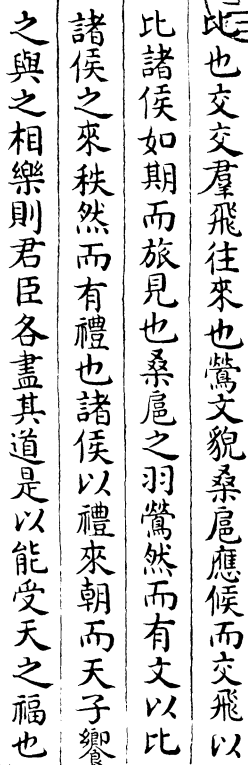 比也交交羣飛往來也鶯文貌桑扈應候而交飛以
比諸侯如期而旅見也桑扈之羽鶯然而有文以比
諸侯之來秩然而有禮也諸侯以禮來朝而天子饗
之與之相樂則君臣各盡其道是以能受天之福也